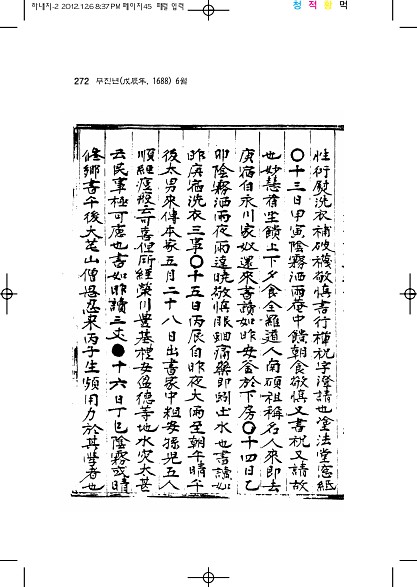 하내지-2 2012.12.6 8:37 PM 페이지45 패컴 입력
청 적 황 먹
272 무진년(戊辰年, 1688) 6월
性衍慰洗衣補破襪敬慎書行
〇十三日甲寅陰霧洒雨菴中饋朝食敬慎又書枕又請故
也妙慧 堂饋上下夕食全羅道人南碩祖稱名人來即去
庚宿伯永川家奴還來書讀如昨毋 於下房〇十四日乙
卯陰霧洒雨夜雨達曉敬慎眼 痛藥即 土水也書讀如
昨庚宿洗衣三事〇十五日丙辰自昨夜大雨至朝午晴午
後太男來傳本家五月二十八日出書家中粗安孫兒五人
順經疫疹云可喜但所經榮川豊基禮安盈德等地水灾太甚
云民事極可慮也書如昨讀三丈●十六日丁巳陰霧或晴
修鄉書午後大芚山僧思忍來丙子生頻用力於其學者也